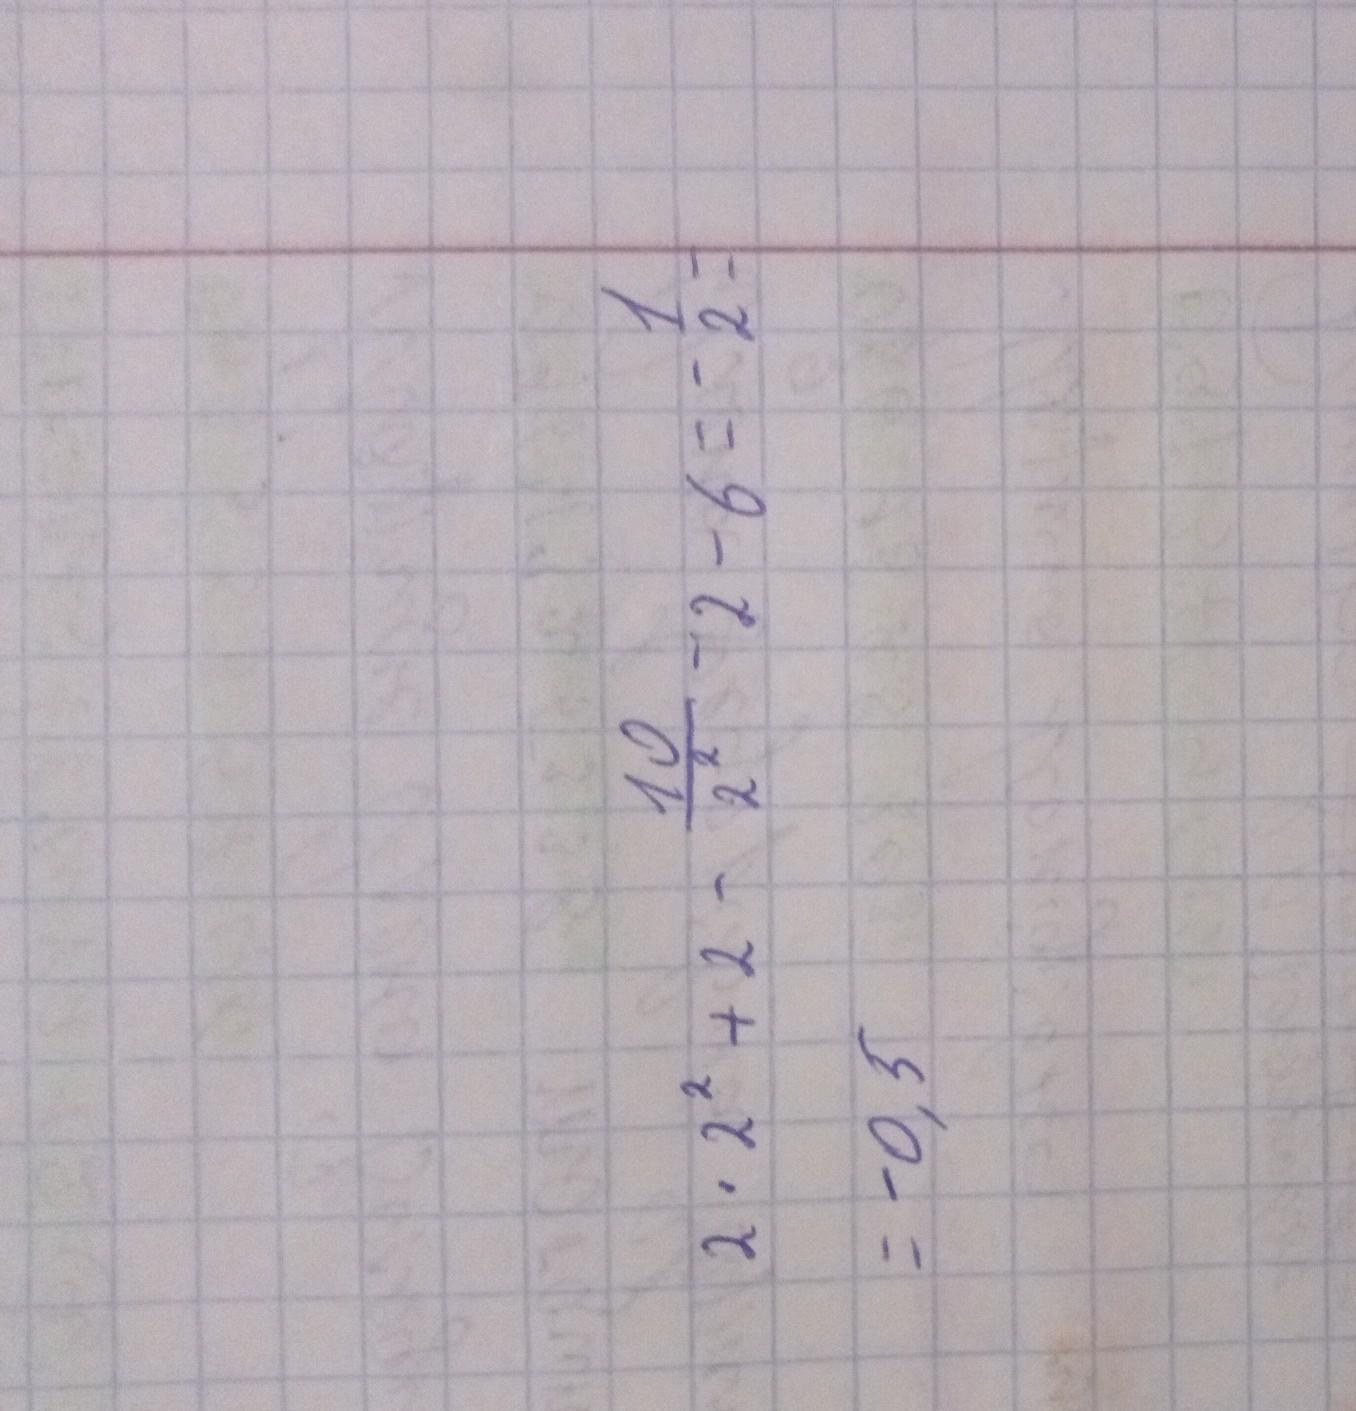 2 · 2² + 2 - 10/2² - 2 - 6 = - 1/2 =
= -0,5